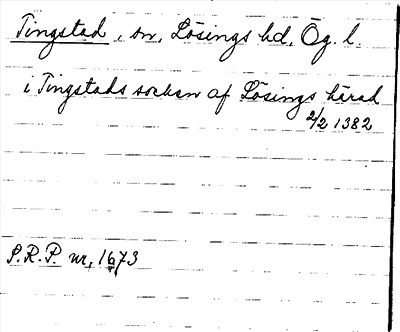 Tingstad, sn, Lösings hd, Ög. l.
i Tingstads socken af Lösings härad
2/2 1382
S.R.P. nr, 1673